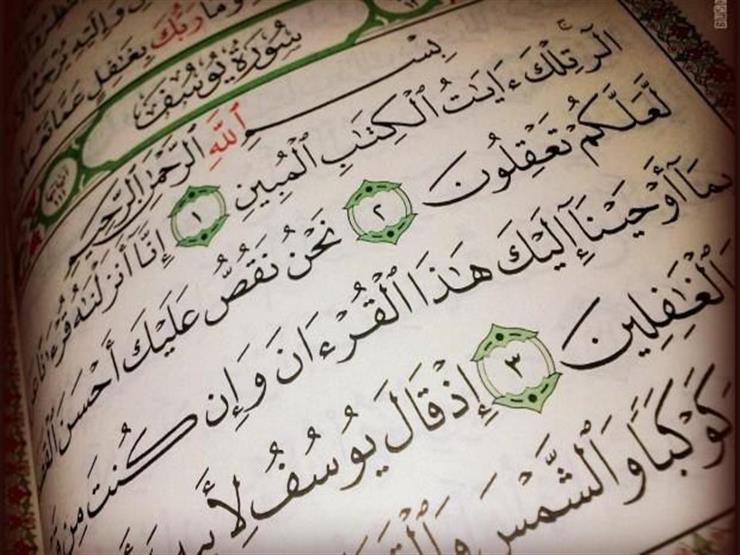 وَإِلَيْهِ يُرْجَعُ
وَمَا رَبُّكَ بِغَٰفِلٍ عَمَّا
سُورَةُ يُوسُفَ
بِسْمِ ٱللَّهِ ٱلرَّحْمَٰنِ ٱلرَّحِيمِ
الٓر تِلْكَ ءَايَٰتُ ٱلْكِتَٰبِ ٱلْمُبِينِ ١ إِنَّآ أَنزَلْنَٰهُ قُرْءَٰنًا
لَّعَلَّكُمْ تَعْقِلُونَ ٢ نَحْنُ نَقُصُّ عَلَيْكَ أَحْسَنَ
بِمَآ أَوْحَيْنَآ إِلَيْكَ هَٰذَا ٱلْقُرْءَانَ وَإِن كُنتَ مِن
ٱلْغَٰفِلِينَ ٣ إِذْ قَالَ يُوسُفُ
كَوْكَبًا وَٱلشَّمْسَ